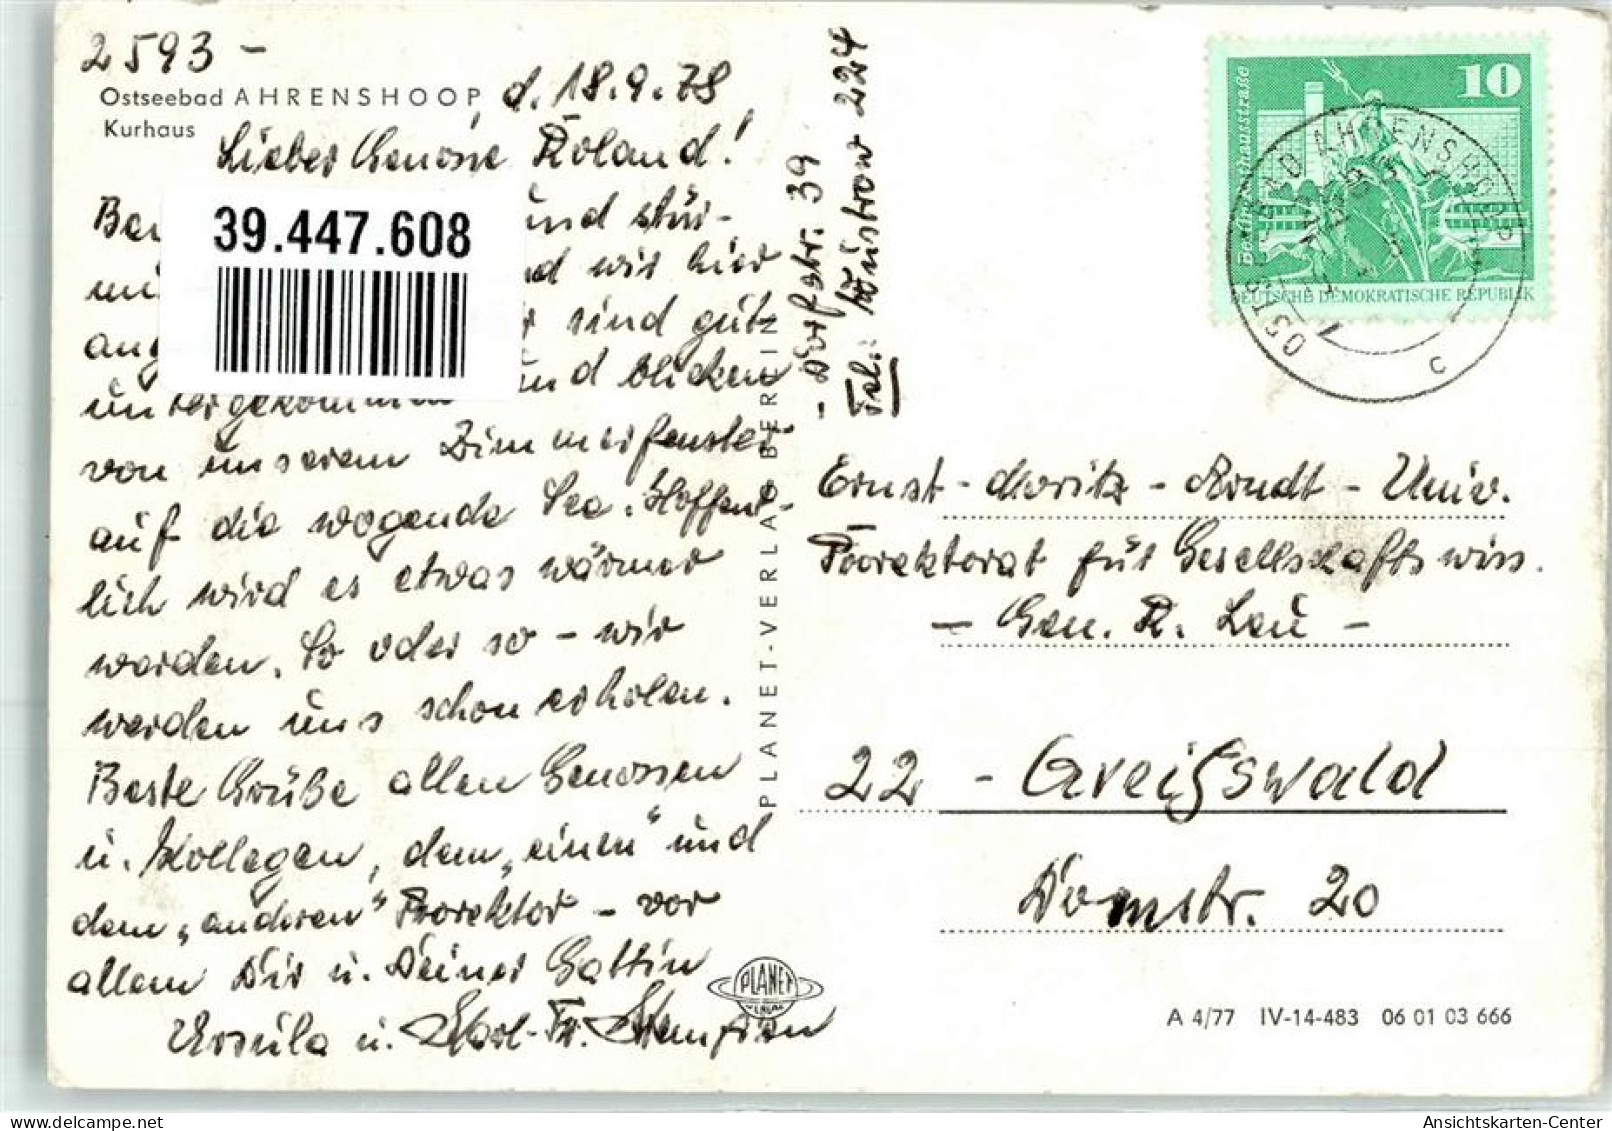 2593 -
Ostseebad AHRENSHOOP
Kurhaus
d. 18.9.78
Lieber Genosse Roland!
und stür-
wir hier
sind gut
untergekommen und blicken
von unserem Zimmerfenster
auf die wogende See. Hoffent-
lich wird es etwas wärmer
werden. So oder so - wir
werden uns schon erholen.
Beste Grüße allen Genossen
u. Kollegen, dem „einen" und
dem „anderen" Prorektor - vor
allem Dir u. Deiner Gattin
Ursula u.
39.447.608
PLANET-VERLAG BERLIN
PLANET
VERLAG
- Dorfstr. 39
Tel.: Wustrow 224
10
Berlin Rathausstraße
DEUTSCHE DEMOKRATISCHE REPUBLIK
OSTSEEBAD AHRENSHOOP
c
Ernst-Moritz-Arndt-Univ.
Prorektorat für Gesellschaftswiss.
- Gen. R. Lau -
22 - Greifswald
Domstr. 20
A 4/77 IV-14-483 06 01 03 666
Ansichtskarten-Center